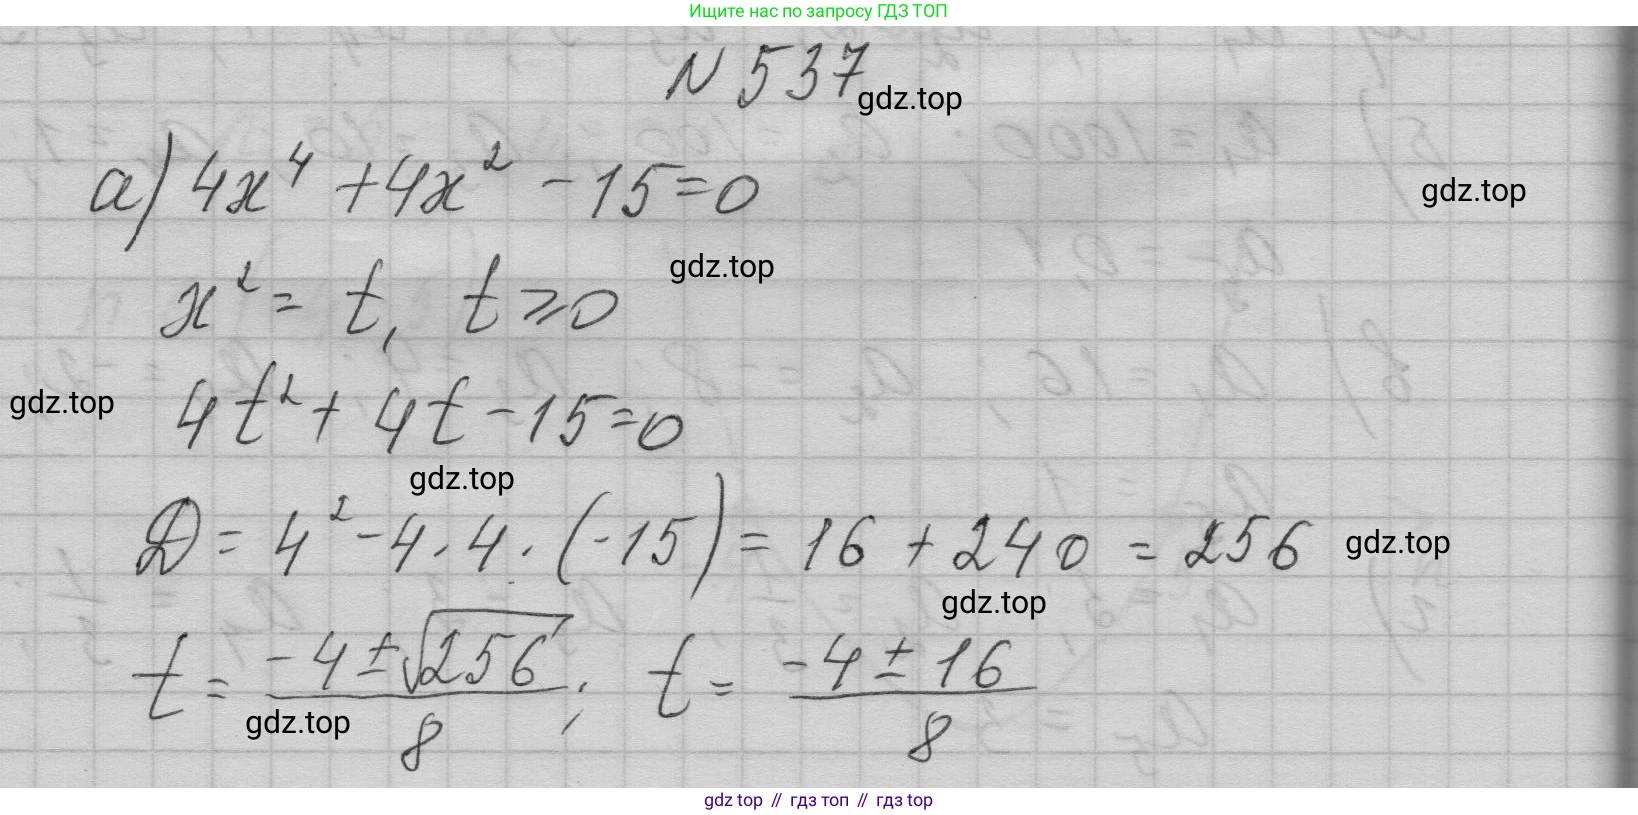 Ищите нас по запросу ГДЗ ТОП
N 537
gdz.top
а) 4x⁴ + 4x² - 15 = 0
gdz.top
x² = t, t ⩾ 0
gdz.top
gdz.top
4t² + 4t - 15 = 0
gdz.top
D = 4² - 4 · 4 · (-15) = 16 + 240 = 256
gdz.top
gdz.top
t = (-4 ± √256)/8; t = (-4 ± 16)/8
gdz.top
gdz top // гдз топ // гдз top